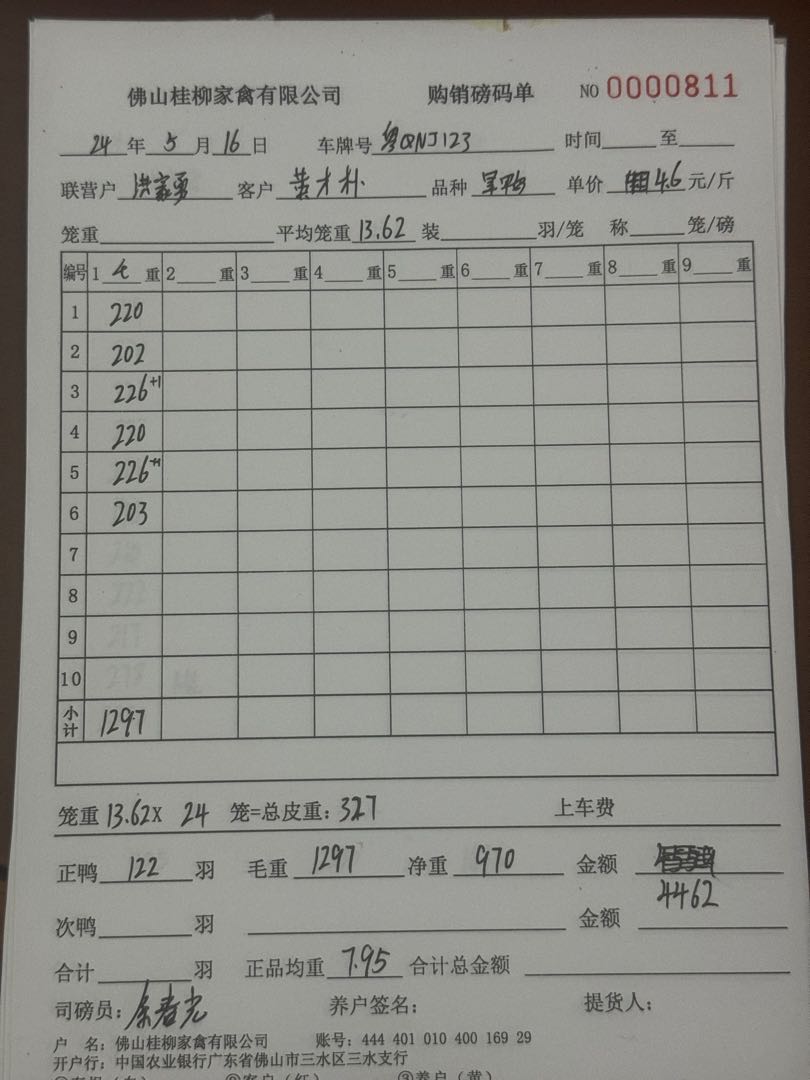 佛山桂柳家禽有限公司 购销磅码单 NO 0000811
24年5月16日 车牌号粤QNJ123 时间 至
联营户 洪家勇 客户 黄才朴 品种 单价 4.6元/斤
笼重 平均笼重13.62 装 羽/笼 称 笼/磅
编号 1 毛 重 2 重 3 重 4 重 5 重 6 重 7 重 8 重 9 重
1 220
2 202
3 226+1
4 220
5 226+1
6 203
7
8
9
10
小计 1297
笼重 13.62X 24 笼=总皮重：327 上车费
正鸭 122 羽 毛重 1297 净重 970 金额
4462
次鸭 羽 金额
合计 羽 正品均重 7.95 合计总金额
司磅员：余春光 养户签名： 提货人：
户 名：佛山桂柳家禽有限公司 账号：444 401 010 400 169 29
开户行：中国农业银行广东省佛山市三水区三水支行